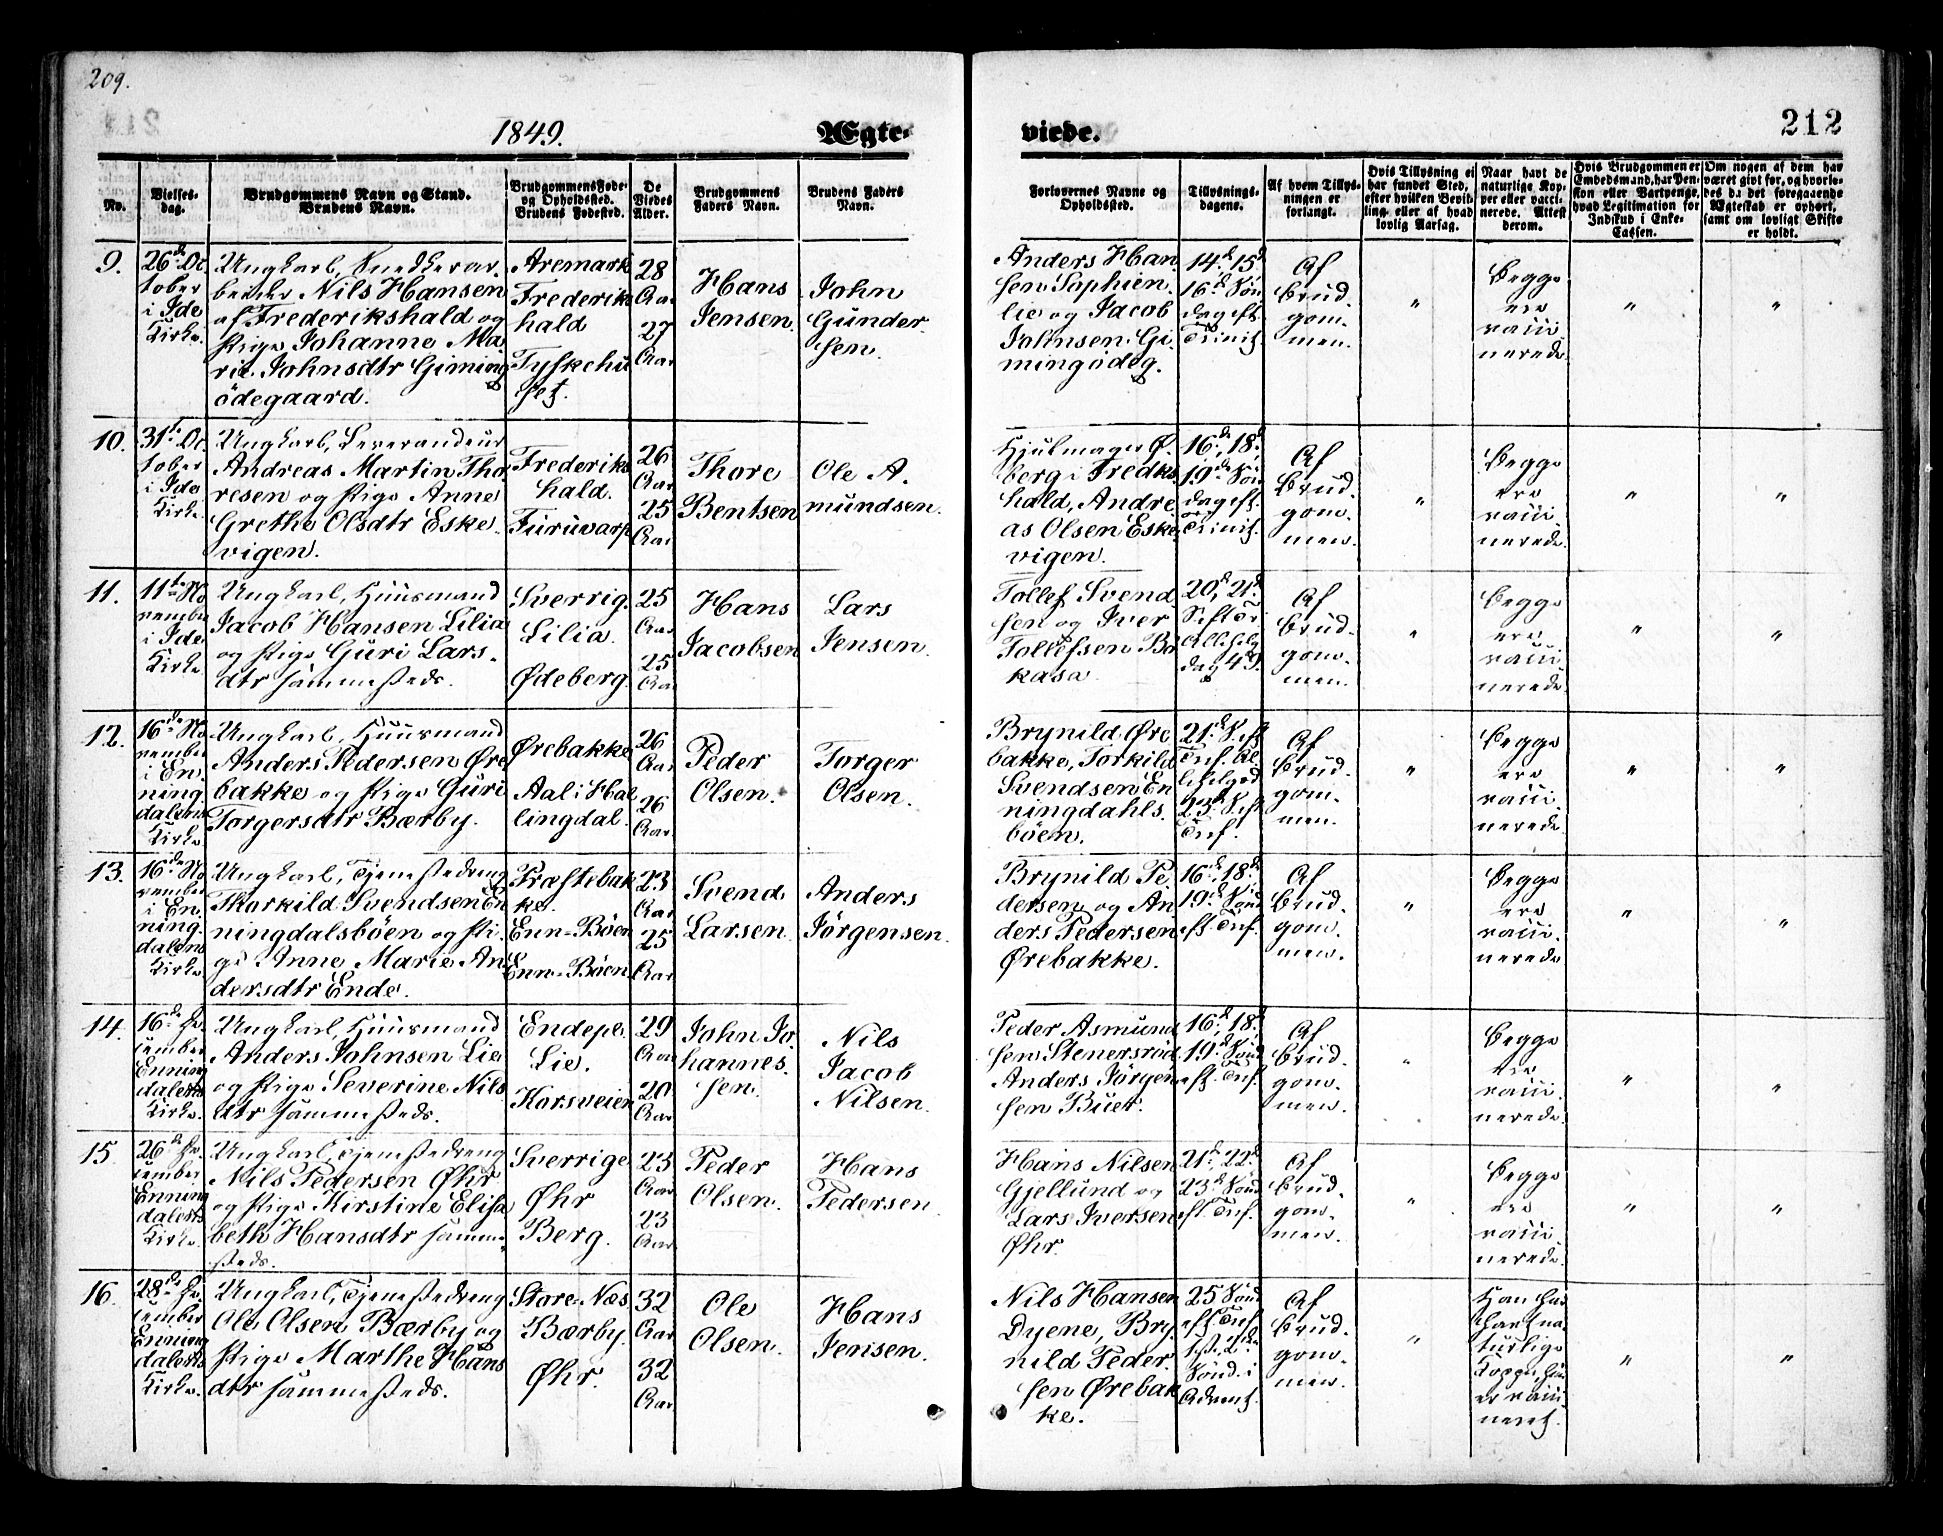 209.
1849.
Ægte-
viede.
212
No.
Vielses-
dag.
Brudgommens Navn og Stand.
Brudens Navn.
Brudgommens Føde-
og Opholdssted.
Brudens Fødested.
De
Viedes
Alder.
Brudgommens
Faders Navn.
Brudens Faders
Navn.
Forlovernes Navne og
Opholdssted.
Tillysnings-
dagene.
Af hvem Tillys-
ningen er
forlangt.
Hvis Tillysning ei
har fundet Sted,
efter hvilken Bevil-
ling, eller af hvad
lovlig Aarsag.
Naar havt de
naturlige Kop-
per eller vacci-
nerede. Attest
derom.
Hvis Brudgommen er
Embedsmand, har Pen-
sion eller Vartpenge,
hvad Legitimation for
Indskud i Enke-
Cassen.
Om nogen af dem har
været givt før, og hvorle-
des da det foregaaende
Ægteskab er ophørt,
samt om lovligt Skifte
er holdt.
9.
26de Oc
tober
i Ide
Kirke.
Ungkarl, Snedkerar
beider Nils Hansen
af Frederikshald og
Pige Johanne Ma
rie Johnsdtr Giming
ödegaard.
Aremark
Frederiks
hald
Tyskehu
set.
28
Aar
27
Aar
Hans
Jensen.
John
Gunder
sen.
Anders Han
sen Sophien
lie og Jacob
Johnsen Gi
mingødeg.
14d 15d
16d Søn
dag eft.
Trinit.
Af
Brud-
gom-
men.
"
Begge
ere
vacci
nerede.
"
"
10.
31te Oc
tober
i Ide
Kirke
Ungkarl, Leverandeur
Andreas Martin Tho
resen og Pige Anne
Grethe Olsdtr Eske
vigen.
Frederiks
hald.
Furuvarp
26
Aar
25
Aar
Thore
Bentsen
Ole A.
mundsen.
Hjulmager Ø.
berg i Fredks
hald, Andre
as Olsen Eske
vigen.
16de, 18d
19de Søn
dag eft.
Trinit.
Af
Brud-
gom-
men.
"
Begge
ere
vacci
nerede.
"
"
11.
11te No
vember
i Ide
Kirke
Ungkarl, Huusmand
Jacob Hansen Lilia
og Pige Guri Lars-
dtr sammesteds.
Sverrig.
Lilia.
Ødeberg.
25
Aar
25
Aar
Hans
Jacobsen
Lars
Jensen.
Tollef Svend-
sen og Iver
Tollefsen Bo
kasa
20d, 21d
S. eft Tr.
Allehelg
dag 49.
Af
Brud-
gom-
men.
"
Begge
ere
vacci
nerede.
"
"
12.
16de No
vember
i En
ning
dalens
Kirke.
Ungkarl, Huusmand
Anders Pedersen Øre
bakke og Pige Guri
Torgersdtr Bærby.
Ørebakke
Aal i Hal
lingdal.
26
Aar
26
Aar.
Peder
Olsen.
Torger
Olsen.
Brynild Øre
bakke, Torkild
Svendsen En
ningdahls.
böen.
21d S. eft
Trf. Al
lehelgod
23d S. eft
Trf.
Af
Brud-
gom-
men.
"
Begge
ere
vacci
nerede.
"
"
13.
16de No
vember
i En
ning.
dalens
Kirke
Ungkarl, Tjenestedreng
Thorkild Svendsen En
ningdalsböen og Pi-
ge Anne Marie An
dersdtr Ende.
Præstebak
ke.
Enn-Böen
Enn-Böen.
23
Aar
25
Aar
Svend
Larsen.
Anders
Jörgensen.
Brynild Pe
dersen og An
ders Pedersen
Ørebakke.
16d, 18de
19de Sønd
eft. Trf.
Af
Brud-
gom-
men.
"
Begge
ere
vacci
nerede
"
"
14.
16de De
cember
Enning
dalens
Kirke.
Ungkarl, Huusmand
Anders Johnsen Lie
og Pige Severine Nils
dtr sammesteds.
Endepl.
Lie.
Korsveien
29
Aar
20
Aar
John Jo.
hannes.
sen.
Nils
Jacob
Nilsen.
Peder Asmund
sen Stenersröd
Anders Jørgen
sen Buer.
16d, 18d
19d Sønd
eft. Trf.
Af
Brud-
gom-
men.
"
Begge
ere
vacci
nerede.
"
"
15.
26de De.
cember
Enning
dalens
Kirke.
Ungkarl, Tjenestedreng
Nils Pedersen Øhr
og Pige Kirstine Elisa
beth Hansdtr samme-
steds.
Sverrige
Øhr
Berg.
23
Aar
23
Aar.
Peder
Olsen.
Hans
Pedersen.
Hans Nilsen
Gjellund og
Lars Iversen
Øhr.
21d, 22d
23d Sønd
eft. Trf.
Af
Brud-
gom-
men.
"
Begge
ere
vacci
nerede.
"
"
16.
28de De
cember
Enning
dalens
Kirke.
Ungkarl, Tjenestedreng
Ole Olsen Bærby og
Pige Marthe Hans
dtr sammesteds.
Store-Næs
Bærby.
Øhr.
32
Aar
32
Aar.
Ole
Olsen.
Hans
Jensen.
Nils Hansen
Dyene, Bry
nild Peder
sen Ørebak
ke.
25 Sønd
eft Trf
1ste, 2de
Sønd. i
Advent.
Af
Brud-
gom-
men.
"
Han har
havt na
turlige
Kopper, hun
er vacci
neret.
"
"